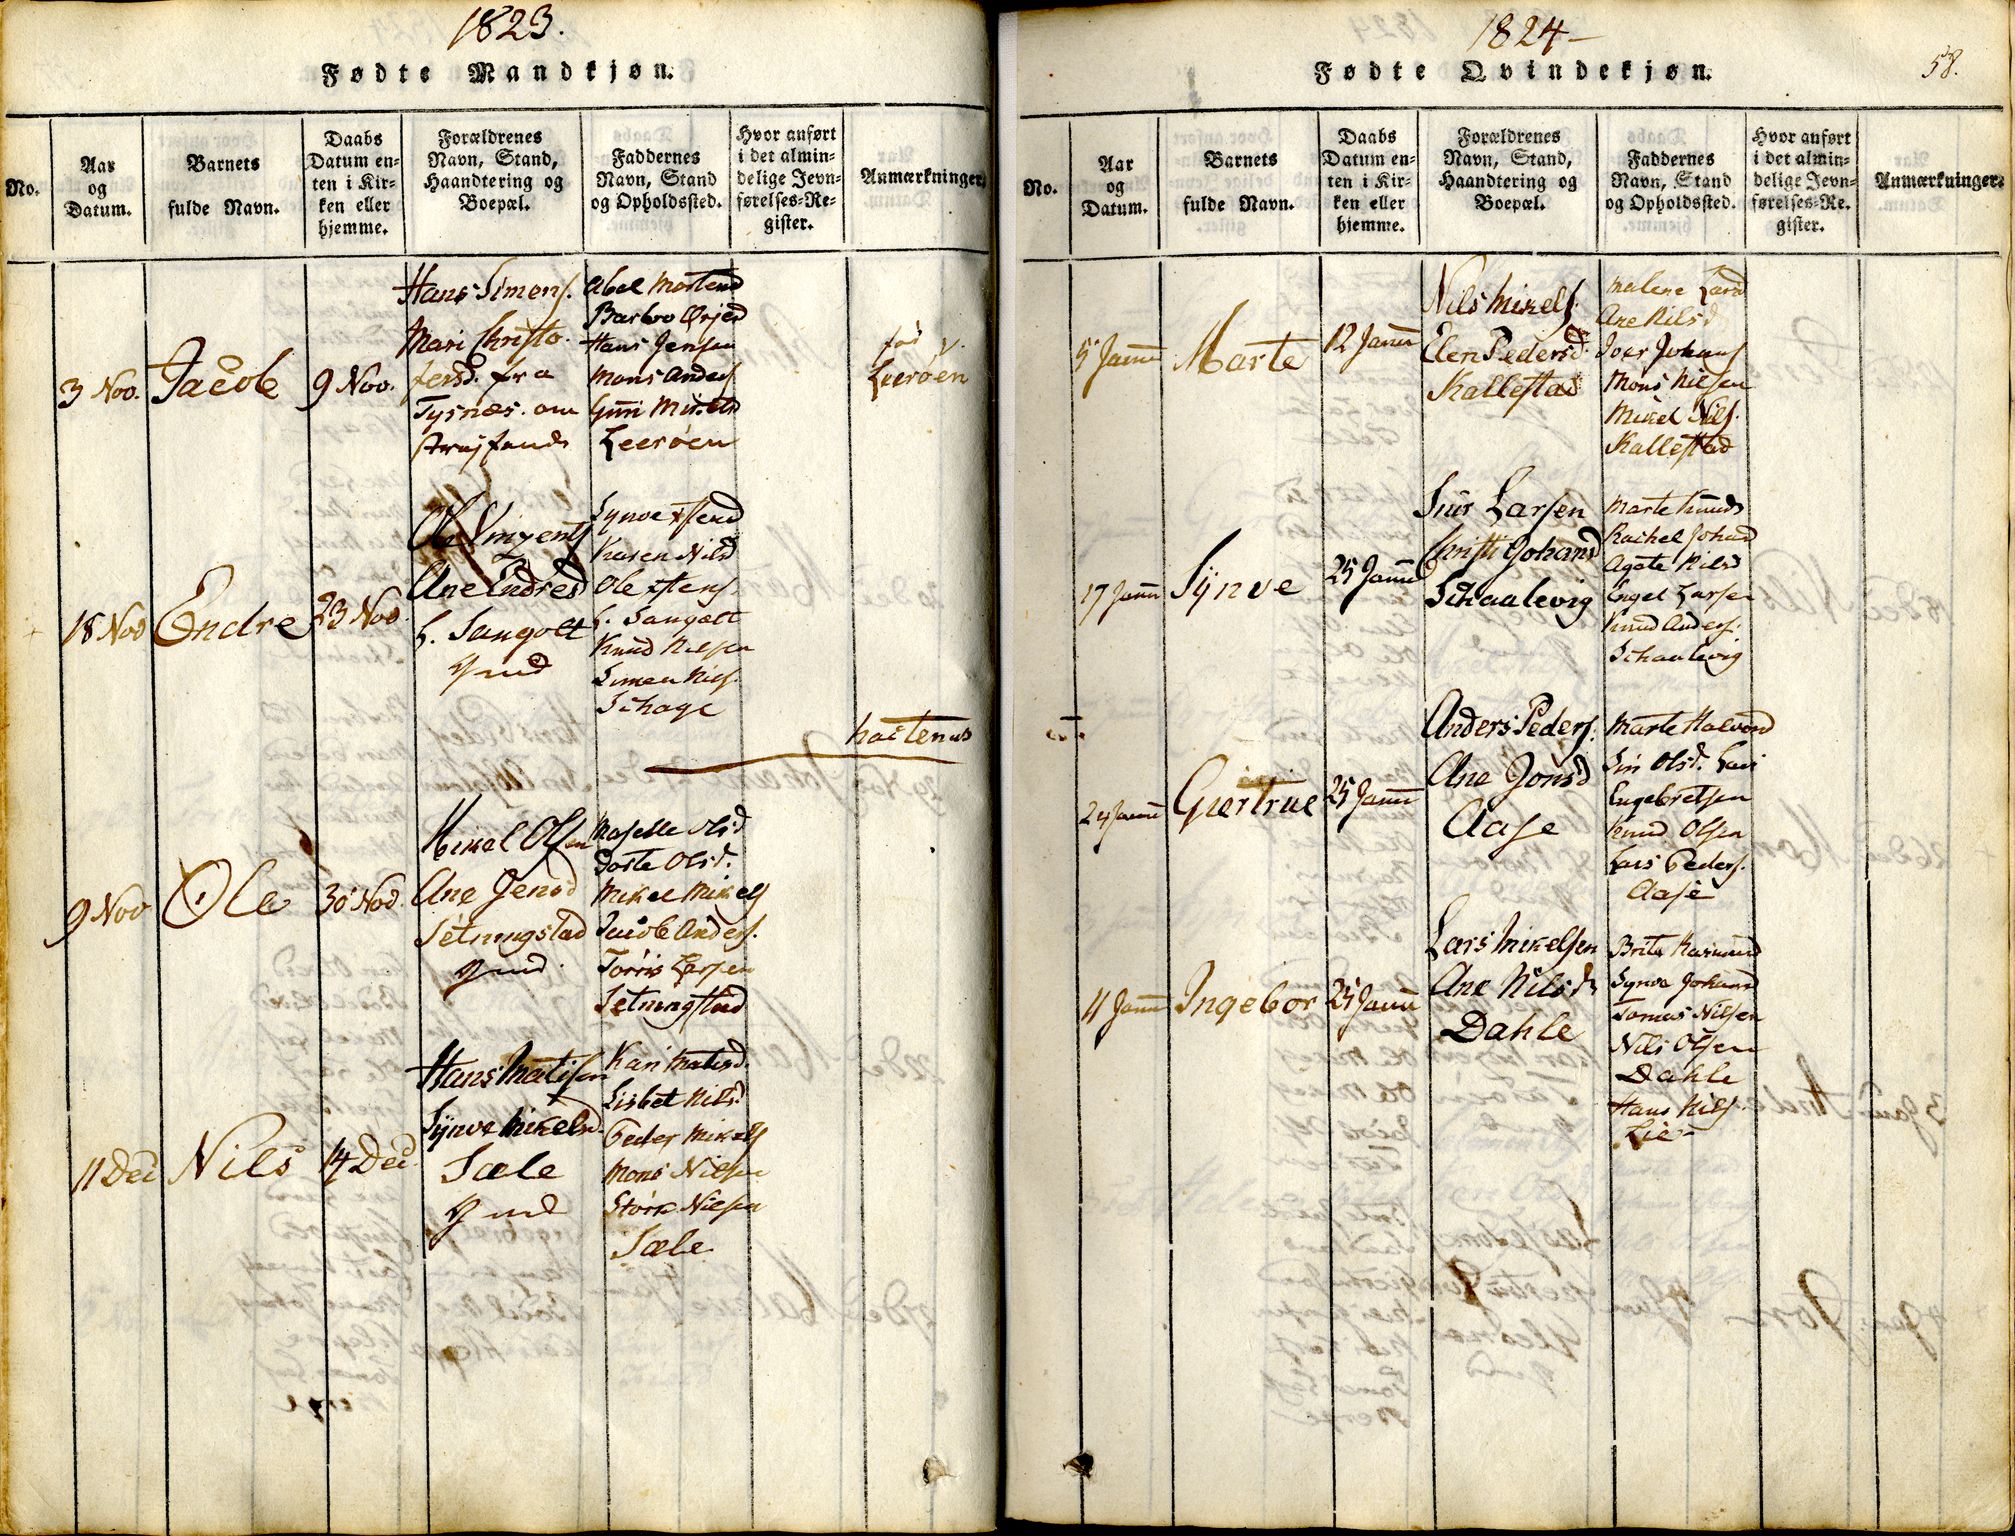 1823.
Fødte Mandkjøn.
No.
Aar
og
Datum.
Barnets
fulde Navn.
Daabs
Datum en-
ten i Kir-
ken eller
hjemme.
Forældrenes
Navn, Stand,
Haandtering og
Boepæl.
Faddernes
Navn, Stand
og Opholdssted.
Hvor anført
i det almin-
delige Jevn-
førelses-Re-
gister.
Anmærkninger.
3 Nov.
Jacob
9 Nov.
Hans Simens.
Mari Christo
fersd. fra
Tysnæs. om
Abel Mortend
Barbro Ørjed
Hans Jensen
Mons Anders
Guri Mikelsd
Leerøen
fød
Leerøen
18 Nov
Endre
23 Nov.
Ole Vinzents
Ane Endresd
h. Sangolt
gmd
Synve
Karen Nilsd
Ole
h. Sangolt
Knud Nielsen
Simen Niels.
Schage
9 Nov
Ole
30 Nov.
Mikal Olsen
Ane Jensd
Setningstad
gmd.
Dorte Olsd.
Mikel Mikels
Jacob Anders.
Torris Larsen
Setningstad
11 Dec
Nils
14 Dec.
Hans Matisen
Synve Mikelsd.
Sæle
gmd
Kari Matisd.
Lisbet Nilsd
Peder Mikels
Mons Nilsen
Størk Nilsen
Sæle
1824-
58.
Fødte Qvindekjøn.
No.
Aar
og
Datum.
Barnets
fulde Navn.
Daabs
Datum en-
ten i Kir-
ken eller
hjemme.
Forældrenes
Navn, Stand,
Haandtering og
Boepæl.
Faddernes
Navn, Stand
og Opholdssted.
Hvor anført
i det almin-
delige Jevn-
førelses-Re.
gister.
Anmærkninger.
5 Janu
Marte
12 Janu
Nils Mikels.
Elen Pedersd.
Kallestad
Malene Larsd
Ane Nilsd
Iver Johans
Mons Nilsen
Mikel Nils.
Kallestad
17 Janu
Synve
25 Janu
Siur Larsen
Christi Johansd
Schaalevig
Marte Knuds
Rachel Johansd
Agate Nilsd
Engel Larsen
Knud Anders.
Schaalevig
24 Janu
Giertrue
25 Janu
Anders Peders.
Ane Jonsd
Aase
Marte Halvord
Siri Olsd. Lars
Engebretsen
Knud Olsen
Lars Peders.
Aase
11 Janu
Ingebor
25 Janu
Lars Mikelsen
Ane Nilsd
Dahle
Brita Rasmusd
Synve Johansd
Tomas Nilsen
Nils Olsen
Dahle
Hans Nils.
Lie